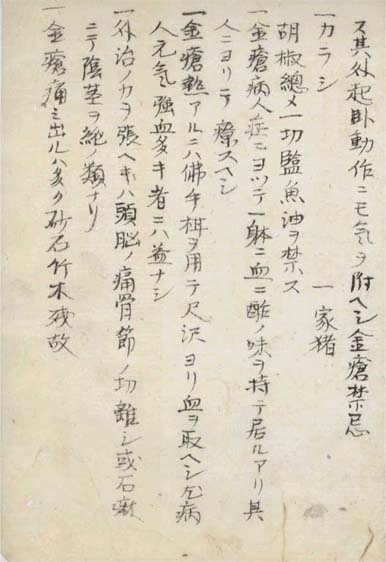 ス其外起臥動作ニモ氣ヲ附ヘシ金瘡禁忌
一カラシ　一家猪
胡椒總〆一切塩魚油ヲ禁ス
一金瘡病人症ニヨツテ一躰ニ血ニ酢ノ味ヲ持テ居ルアリ其
人ニヨリテ療スヘシ
一金瘡熱アルニハ佛手柑ヲ用テ尺沢ヨリ血ヲ取ヘシ左病
人元気強血多キ者ニハ益ナシ
一外治ノ力ヲ張ヘキハ頭脳ノ痛骨節ノ切離シ或石瘷
ニテ陰茎ヲ 類ナリ
一金瘡痛ミ出ルハ多ク砂石竹木残故